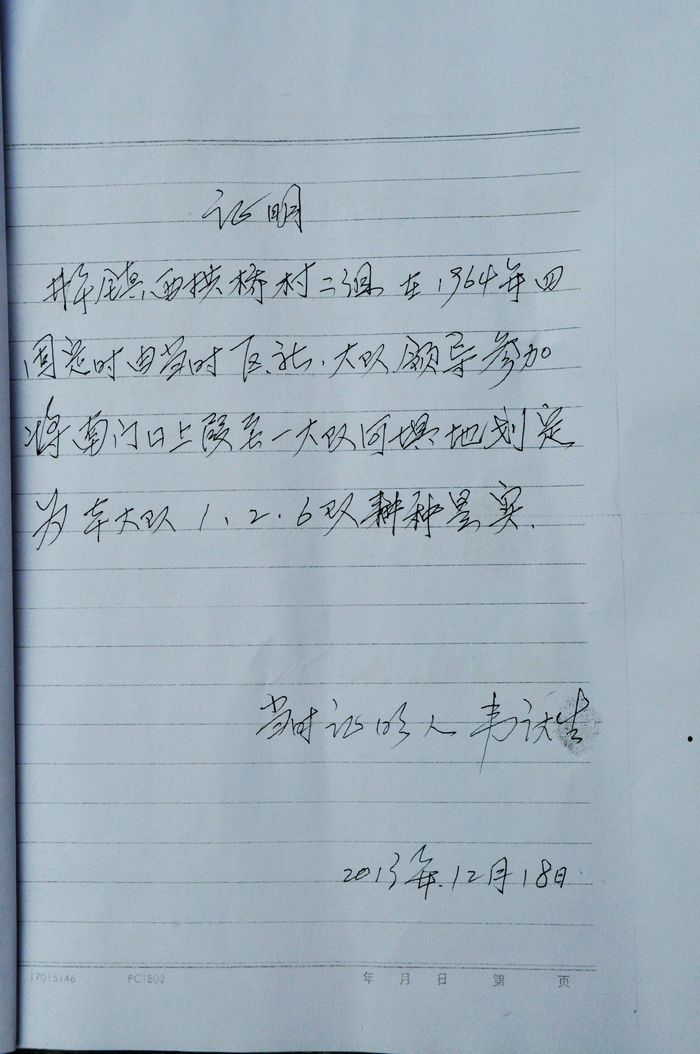 证明
镇西拱桥村二组在1964年四
固定时由当时区、社、大队领导参加
将南门口上段至一大队河坝地划定
为本大队1、2、6队耕种是实.
当时证明人 韦
2013年.12月18日
17015146 PC1802 年 月 日 第 页